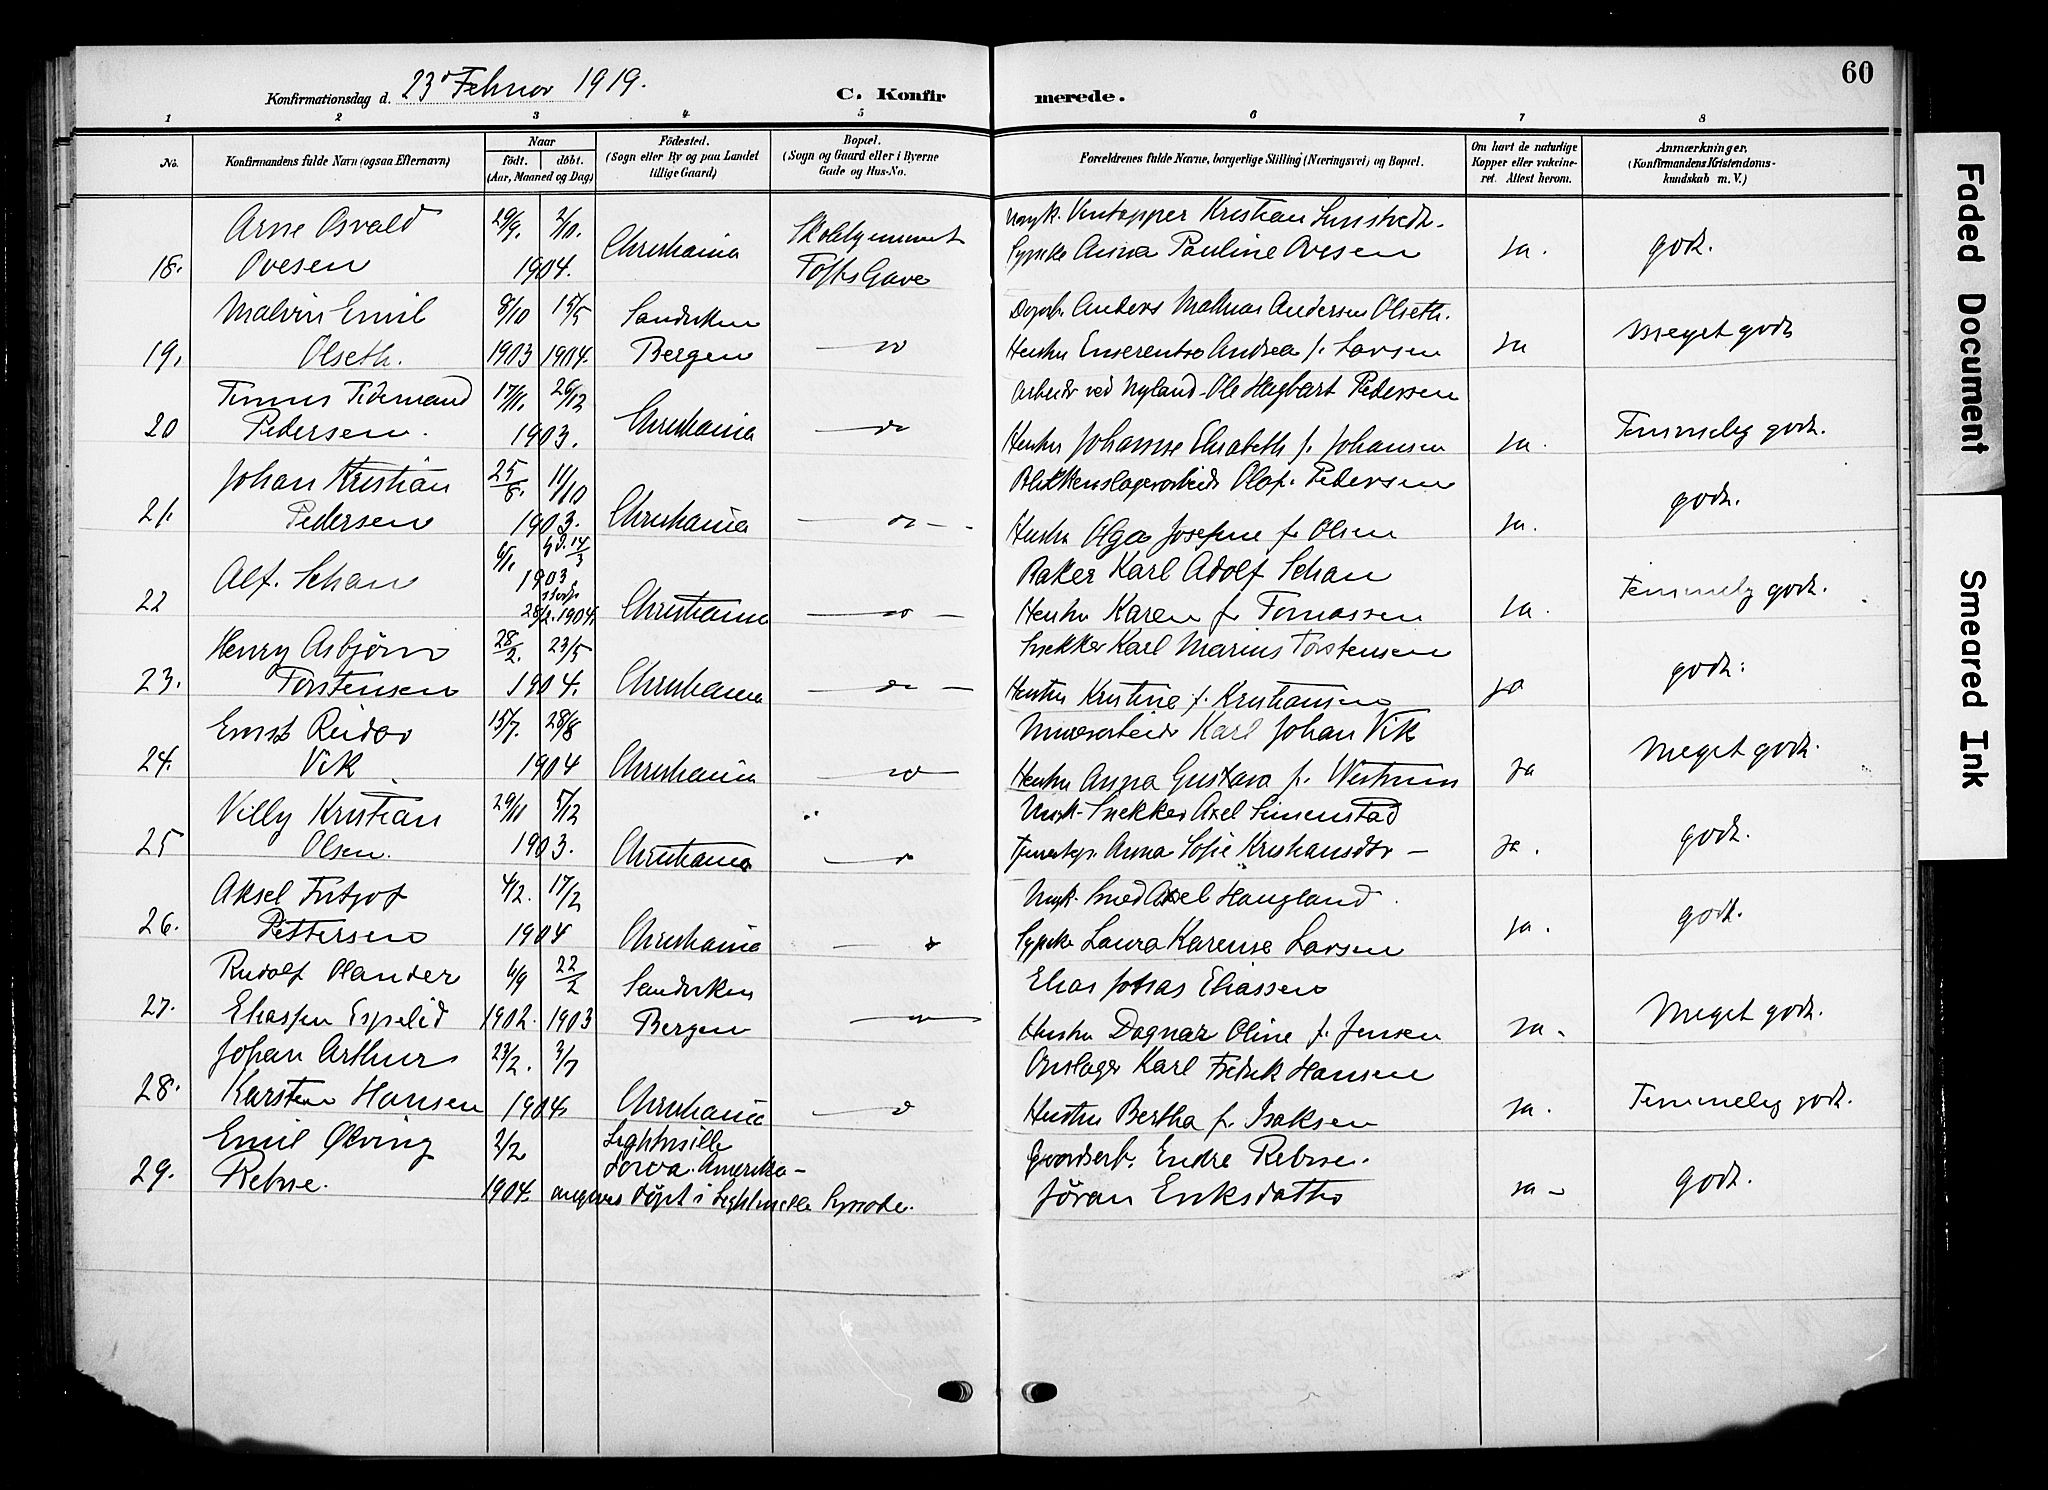 60
Konfirmationsdag d. 23d Februar 1919.
C. Konfirmerede.
1 2 3 4 5 6 7 8
No.
Konfirmandens fulde Navn (ogsaa Efternavn)
Naar
födt. döbt.
(Aar, Maaned og Dag)
Födested.
(Sogn eller By og paa Landet
tillige Gaard)
Bopæl.
(Sogn og Gaard eller i Byerne
Gade og Hus-No.
Forældrenes fulde Navne, borgerlige Stilling (Næringsvei) og Bopæl.
Om havt de naturlige
Kopper eller vaccine-
ret. Attest herom.
Anmærkninger,
(Konfirmandens Kristendoms-
kundskab m. V.)
Arne Osvald 29/9. 2/10. Skolehjemmet Ungk. Vintapper Kristian
18. Ovesen 1904. Christiania Toftes Gave Sypike Anna Pauline Ovesen ja. godt.
Malvin Emil 8/10 15/5 Sandviken Anders Mathias Andersen Olseth.
19. Olseth. 1903 1904. Bergen do Hustru Enserentse Andrea f. Larsen ja meget godt
Tinius Tidemand 17/11. 26/12 Arbeider ved Nyland Ole Hagbart Pedersen
20 Pedersen. 1903. Christiania do Hustru Johanne Elisabeth f. Johansen ja. Temmelig godt.
Johan Kristian 25/8. 11/10 Blikkenslagerarbeider Olaf Pedersen
21. Pedersen 1903. Christiania do Hustru Olga Josefine f. Olsen ja. godt.
6/1. 14/3
Alf. Schau 1903 Baker Karl Adolf Schau
22 28/2. 1904. Christiania do Hustru Karen f. Tomassen ja. Temmelig godt.
Henry Asbjørn 28/2. 23/5 Snekker Karl Marius Torstensen
23. Torstensen 1904. Christiania do Hustru Kristine f. Kristiansen ja godt.
Ernst Reidar 15/7. 28/8 Murerarbeider Karl Johan Vik
24. Vik 1904 Christiania do Hustru Anna Gustava f. ja Meget godt.
Villy Kristian 29/11 5/12 Ungk. Snekker Axel Simenstad
25 Olsen. 1903. Christiania do Tjenestepi. Anna Sofie Kristiansdtr ja. godt.
Aksel Fritjof 4/2. 17/2 Ungk. Smed Axel Haugland
26. Pettersen 1904 Christiania do Sypike Laura Karense Larsen ja. godt.
Rudolf Olander 6/9 22/2 Sandviken Elias Jonas Eliassen
27. Eliassen Espelid 1902. 1903 Bergen do Hustru Dagmar Oline f. Jensen ja. Meget godt.
Johan Arthur 23/2. 3/7 Ovnslager Karl Fredrik Hansen
28. Karsten Hansen 1904 Christiania do Hustru Bertha f. Isaksen ja. Temmelig godt.
Emil Ølving 2/2 Gaardserb. Endre
29. 1904. Amerika Jöran Eriksdatter ja godt.
angives döpt i Synode.
Faded Document
Smeared Ink